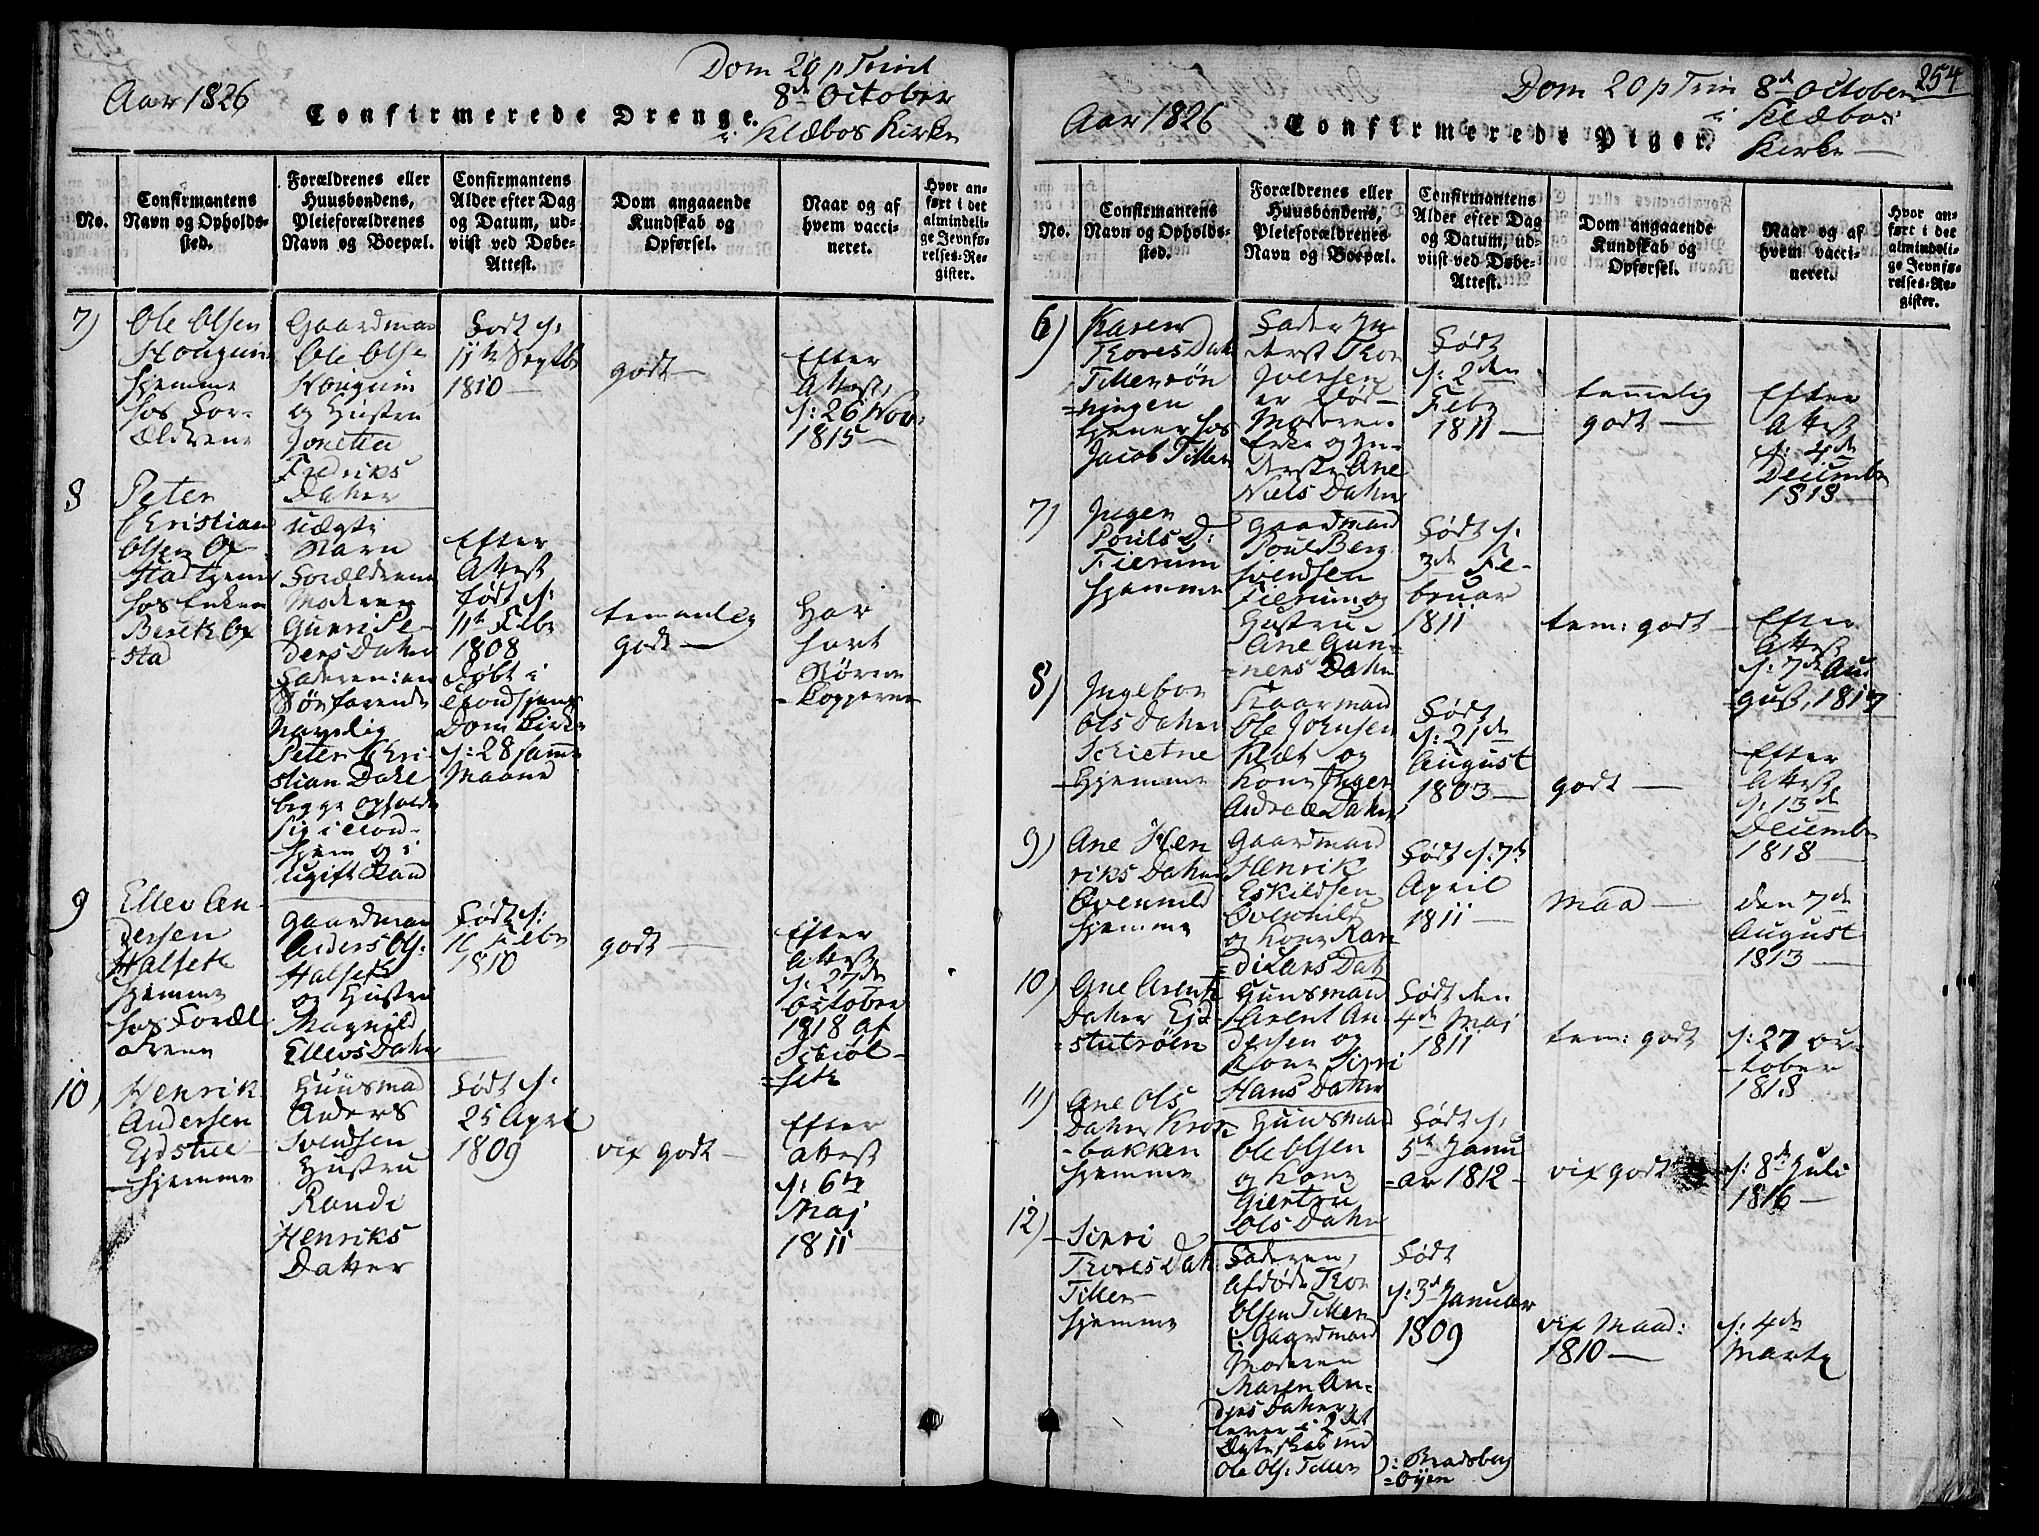 Aar 1826
Confirmerede Drenge.
Dom 20 p Trinit
8de October
i Klæbos Kirke
No.
Confirmantens
Navn og Opholds-
sted.
Forældrenes eller
Huusbondens,
Pleieforældrenes
Navn og Boepæl.
Confirmantens
Alder efter Dag
og Datum, ud-
viist ved Døbe-
Attest.
Dom angaaende
Kundskab og
Opførsel.
Naar og af
hvem vacci-
neret.
Hvor an-
ført i det
almindeli-
ge Jevnfø-
relses-Re-
gister.
7)
Ole Olsen
hjemme
hos For-
ældrene
Gaardmand
Ole Olse
og Hustru
Jonetta
Fredriks
Datter
Født d:
11te Septbr
1810
godt
Efter
Attest
d: 26 Nov:
1815
8
Peter
Christian
Olsen Ox-
stad tjener
hos Enken
Berit Ox
stad
uægte
Barn
Forældrene
Moderen
Guuri Pe-
ders Datter
Faderen: en
Søefarende
navnlig
Peter Chri-
stian Dahl
begge opholde
sig i Trond-
hjem og i
ugift Stand
Efter
Attest
født d:
11te Febr
1808
døbt i
Trondhjems
Dom Kirke
d: 28 samme
Maaned
temmelig
godt
Har
havt
Børne
Kopperne
9
Ellev An-
dersen
Halseth
hjemme
hos Foræl-
drene
Gaardman
Anders Ols:
Halseth
og Hustru
Magnild
Ellevs Datter
Født d:
Febr
1810
godt
Efter
Attest
d: 27de
October
1818 af
Schiøl-
seth
10)
Henrik
Andersen
Ejdstue
hjemme
Huusmand
Anders
Svendsen
Hustru
Randi
Henriks
Datter
Født d:
25 April
1809
vix godt
Efter
Attest
d: 6te
Maj
1811
254
Aar 1826
Confirmerede Piger.
Dom 20 p Trin 8de October
i Klæbos
Kirke
No.
Confirmantens
Navn og Opholds-
sted.
Forældrenes eller
Huusbondens,
Pleieforældrenes
Navn og Boepæl.
Confirmantens
Alder efter Dag
og Datum, ud-
viist ved Døbe-
Attest.
Dom angaaende
Kundskab og
Opførsel.
Naar og af
hvem vacci-
neret.
Hvor an-
ført i det
almindeli-
ge Jevnfø-
relses-Re-
gister.
6)
Karen
Thores Dat
Tillerrøn
ningen
tjener hos
Jacob Tiller
Fader In
derst Thor
Iversen
er død
Moderen
Enke og In-
derste Ane
Niels Datter
Født
d: 2den
Febr
1811
temmelig
godt
Efter
Attest
d: 4de
Decembr
1818
7)
Inger
Pouls D:
Fierum
hjemme
Gaardmand
Poul Berg
Svendsen
Fierum og
Hustru
Ane Gun-
ners Datter
Født d:
3de Fe-
bruar
1811
tem: godt
Efter
Attest
d: 7de Au
gust, 1817
8)
Ingebor
Ols Datter
hjemme
Ole Johnsen
og
Kone Inger
Andreæ Datter
Født
d: 21de
August
1803
godt
Efter
Attest
d: 13de
Decembr
1818
9)
Ane Hen
riks Datter
hjemme
Gaardmand
Henrik
Eskildsen
og Kone Kari
Lars Dat
Født d: 7de
April
1811
Maad
den 7de
August
1813
10)
Ane Arents
Datter Ejd
stutrøen
Huusmand
Arent An
dersen og
Kone Siri
Hans Datter
Født den
4de Maj
1811
tem: godt
d: 27 oc-
tober
1818
11)
Ane Ols
Datter Krok
bakken
hjemme
Huusmand
Ole Olsen
og Kone
Giertru
Ols Datter
Født d:
5te Janu
ar 1812
vix godt
d: 8de Juli
1816
12)
Siri
Thores Dat
Tiller
hjemme
Faderen,
afdøde Thor
Olsen Tiller
f: Gaardmand
Moderen
Maren An-
ders Datter
lever i 2det
Ægteskab md
Ole Ols: Tiller
Født
d: 3de Januar
1809
vix Maad:
1810
d: 4de
Marts